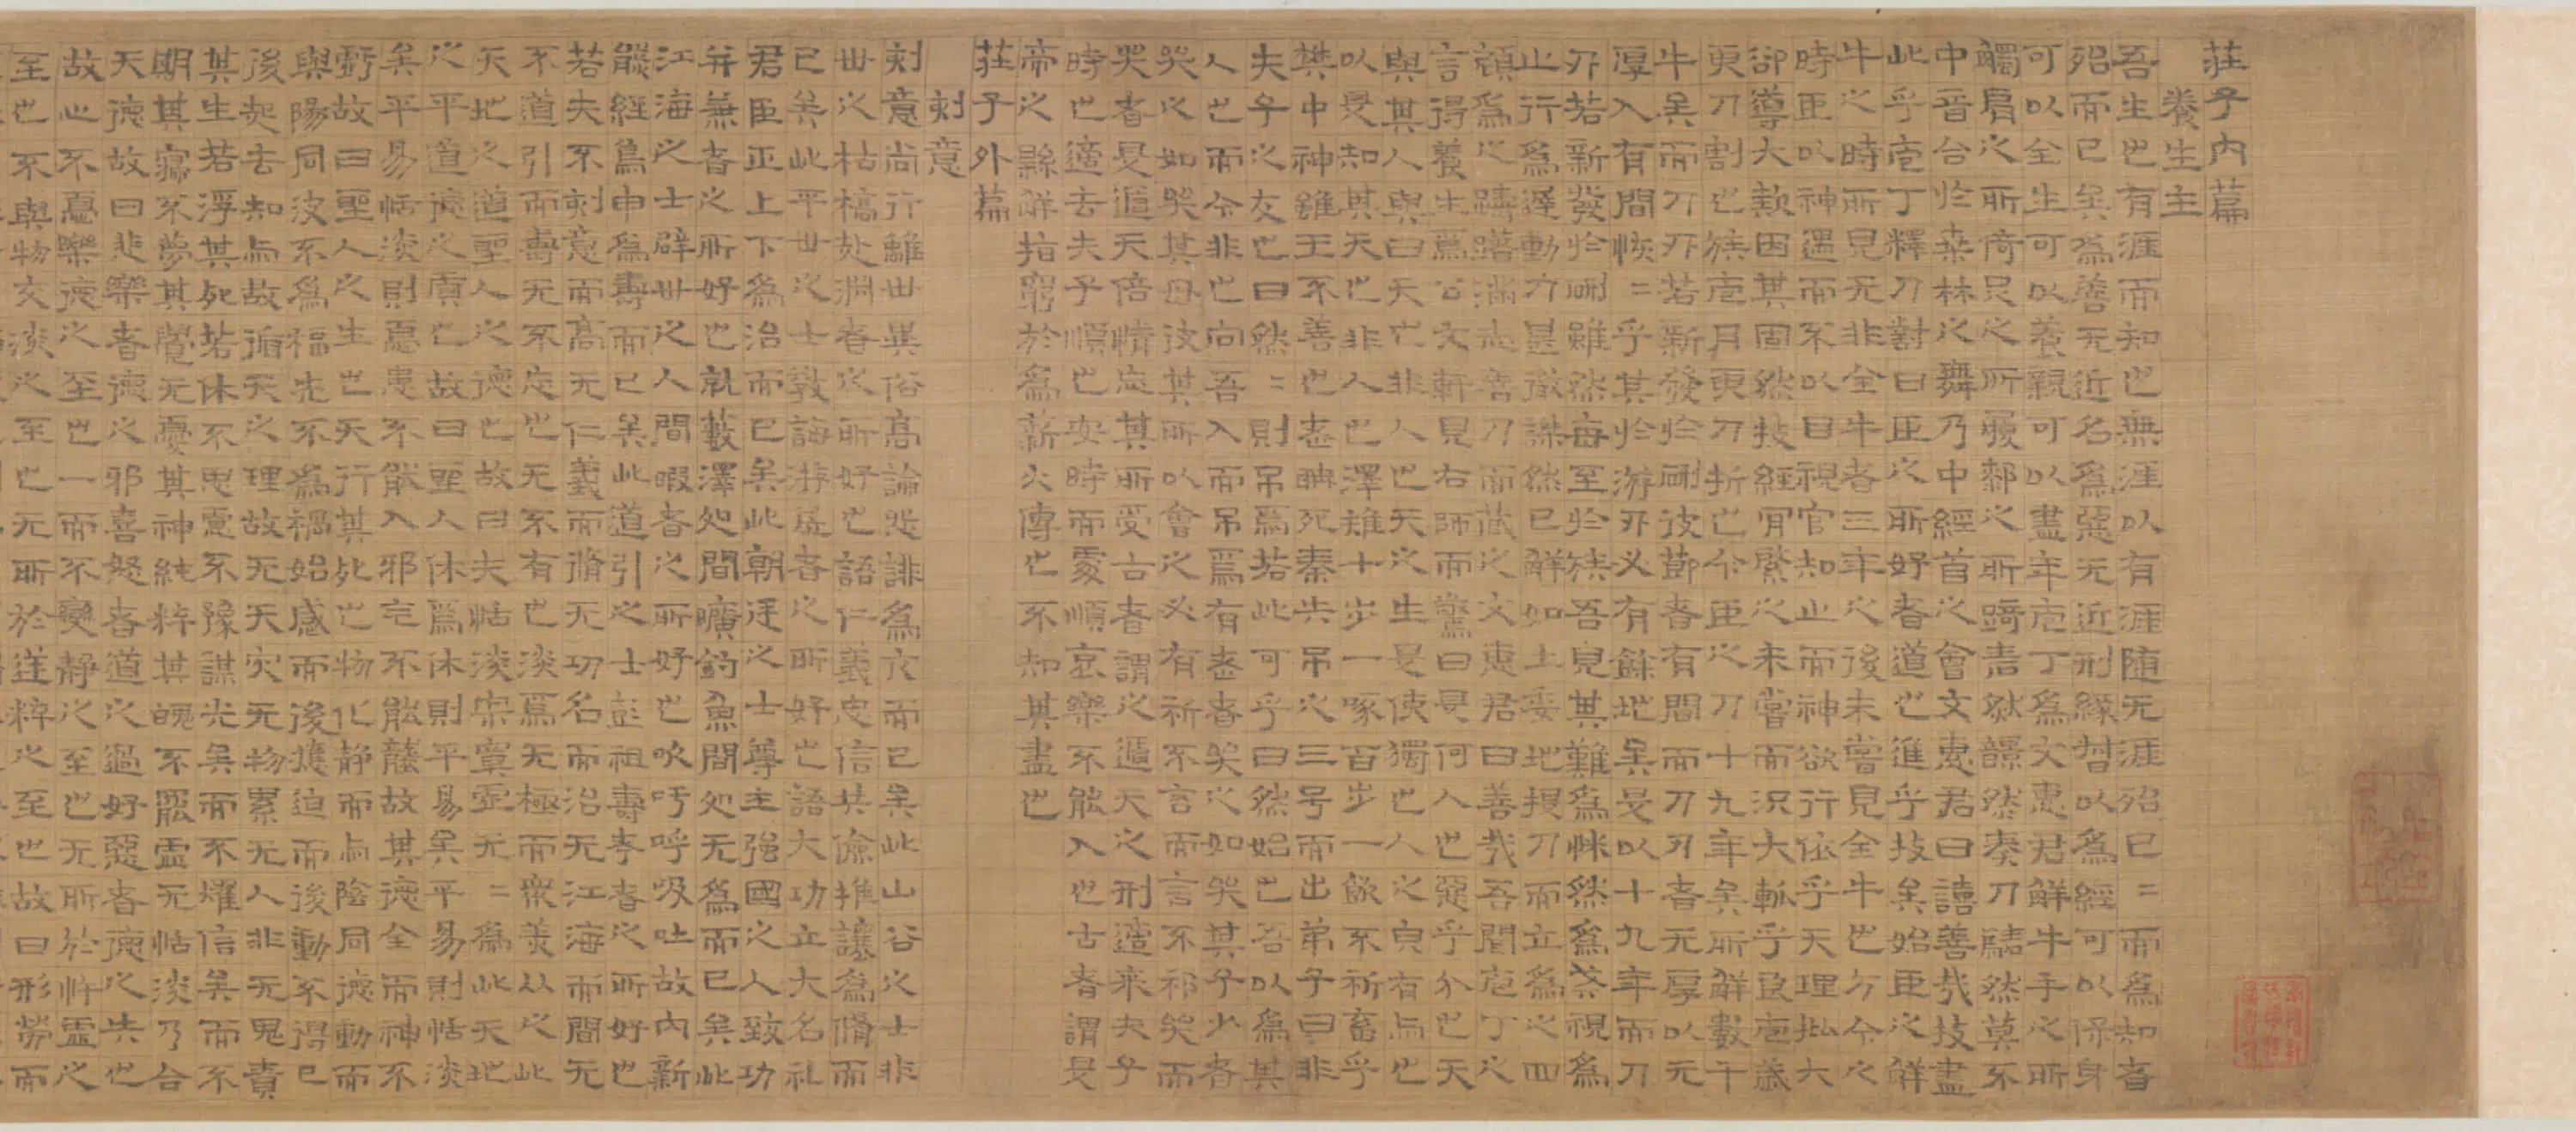 莊子內篇
養生主
吾生也有涯而知也無涯以有涯随无涯殆已=而為知者
殆而已矣為善无近名為惡无近刑緣督以為經可以保身
可以全生可以養親可以盡年庖丁為文惠君解牛手之所
觸肩之所倚足之所履厀之所踦砉然然奏刀騞然莫不
中音合於桒林之舞乃中經首之會文惠君曰譆善哉技盖
此乎庖丁釋刀對曰臣之所好者道也進乎技矣始臣之解
牛之時所見无非全牛者三年之後未嘗見全牛也方今之
時臣以神遇而不以目視官知止而神欲行依乎天理批大
卻導大窾因其固然技經肯綮之未嘗而況大軱乎良庖歲
更刀割也族庖月更刀折也今臣之刀十九年矣所解數千
牛矣而刀刃若新發於硎彼節者有間而刀刃者无厚以无
厚入有間恢=乎其於游刃必有餘地矣是以十九年而刀
刃若新發於硎雖然每至於族吾見其難為怵然為戒視為
止行為遲動刀甚微謋然已解如土委地提刀而立為之四
顧為之躊躇滿志善刀而蔵之文惠君曰善哉吾聞庖丁之
言得養生焉公文軒見右師而驚曰是何人也惡乎介也天
與其人與曰天也非人也天之生是使獨也人之皃有与也
以是知其天也非人也澤雉十步一啄百步一飲不祈畜乎
樊中神雖王不善也老聃死秦失吊之三号而出弟子曰非
夫子之友也曰然=則吊焉若此可乎曰然始也吾以為其
人也而今非也向吾入而吊焉有老者哭之如哭其子少者
哭之如哭其母彼其所以會之必有祈不言而言不祁哭而
哭者是遁天倍情忘其所受古者謂之遁天之刑適来夫子
時也適去夫子順也安時而處順哀樂不能入也古者謂是
帝之縣解指窮於為薪火傳也不知其盡也
莊子外篇
刻意
刻意尚行離世異俗高論怨誹為亢而已矣此山谷之士非
世之枯槁赴淵者之所好也語仁義忠信恭儉推讓為脩而
已矣此平世之士教誨游居者之所好也語大功立大名礼
君臣正上下為治而已矣此朝廷之士尊主強國之人致功
并兼者之所好也就藪澤処間曠釣魚間処无為而已矣此
江海之士辟世之人間暇者之所好也吹呴呼吸吐故內新
熊經鳥申為壽而已矣此道引之士彭祖壽考者之所好也
若夫不刻意而高无仁義而脩无功名而治无江海而間无
不道引而壽无不忘也无不有也淡焉无極而衆美從之此
天地之道聖人之德也故曰夫恬淡寂寞虛无=為此天地
之平道德之質也故曰聖人休焉休則平易矣平易則恬淡
矣平易恬淡則憂患不能入邪氣不能襲故其德全而神不
虧故曰聖人之生也天行其死也物化静而与陰同德動而
與陽同波不為福先不為禍始感而後應迫而後動不得已
後起去知与故循天之理故无天灾无物累无人非无鬼責
其生若浮其死若休不思慮不豫謀光矣而不燿信矣而不
期其寢不夢其覺无憂其神純粹其魂不罷虛无恬淡乃合
天德故曰悲樂者德之邪喜怒者道之過好惡者德之失也
故心不憂樂德之至也一而不變静之至也无所於忤虛之
至也不與物交淡之至也无所於逆粹之至也故曰形勞而